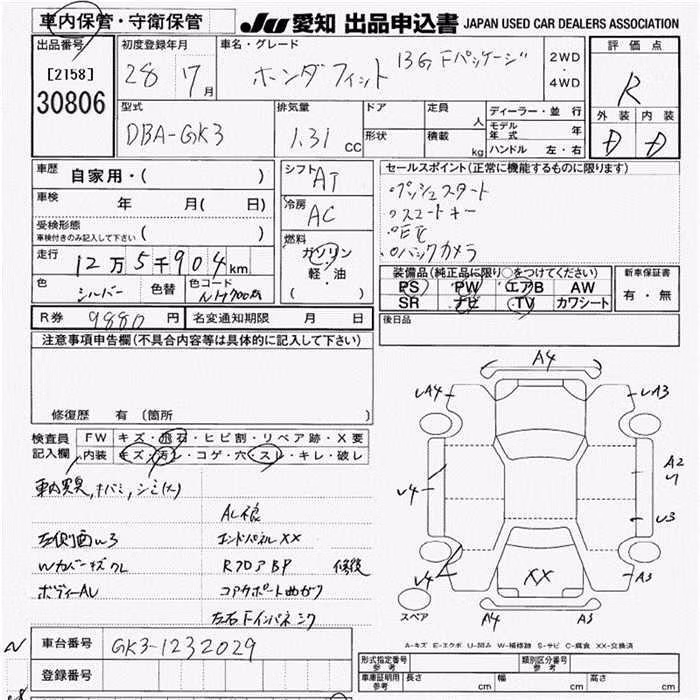 車内保管・守衛保管
JU 愛知 出品申込書 JAPAN USED CAR DEALERS ASSOCIATION
出品番号
[2158]
30806
初度登録年月
28 7月
車名・グレード
ホンダフィット 13G Fパッケージ
2WD
・
4WD
評価点
R
外装 内装
D D
型式
DBA-GK3
排気量
1.3l CC
ドア
定員 人
形状
積載 kg
ディーラー・並行
モデル年式 年
ハンドル 左・右
車歴 自家用・( )
車検 年 月( 日)
受検形態
車検付きのみ記入して下さい ( )
走行 12万5千904km
色 シルバー 色替 色コード NH700M
シフト AT
冷房 AC
燃料
ガソリン
軽・油
( )
セールスポイント(正常に機能するものに限ります)
・プッシュスタート
・スマートキー
・ETC
・バックカメラ
装備品(純正品に限り○をつけてください)
PS PW エアB AW
SR ナビ TV カワシート
新車保証書
有・無
R券 9880円 名変通知期限 月 日
後日品
注意事項申告欄(不具合内容等は具体的に記入して下さい)
修復歴 有(箇所 )
検査員記入欄
FW キズ・飛石・ヒビ割・リペア跡・X要
内装 キズ・汚レ・コゲ・穴・スレ・キレ・破レ
車内異臭,キバミ,シミ(大)
AL傷
左側面W3 エンドパネルXX
Wカバーキズワレ RフロアBP 修復
ボディーAU コアサポート曲がり
左右Fインパネシワ
A4
UA4 UA3
A2
U
U4 U3
U4 A3
XX
A4 A3
スペア
A-キズ E-エクボ U-凹み W-補修跡 S-サビ C-腐食 XX-交換済
車台番号 GK3-1232029
登録番号
形式指定番号 参考 類別区分番号 参考
車庫証明用 参考 長さ cm 幅 cm 高さ cm